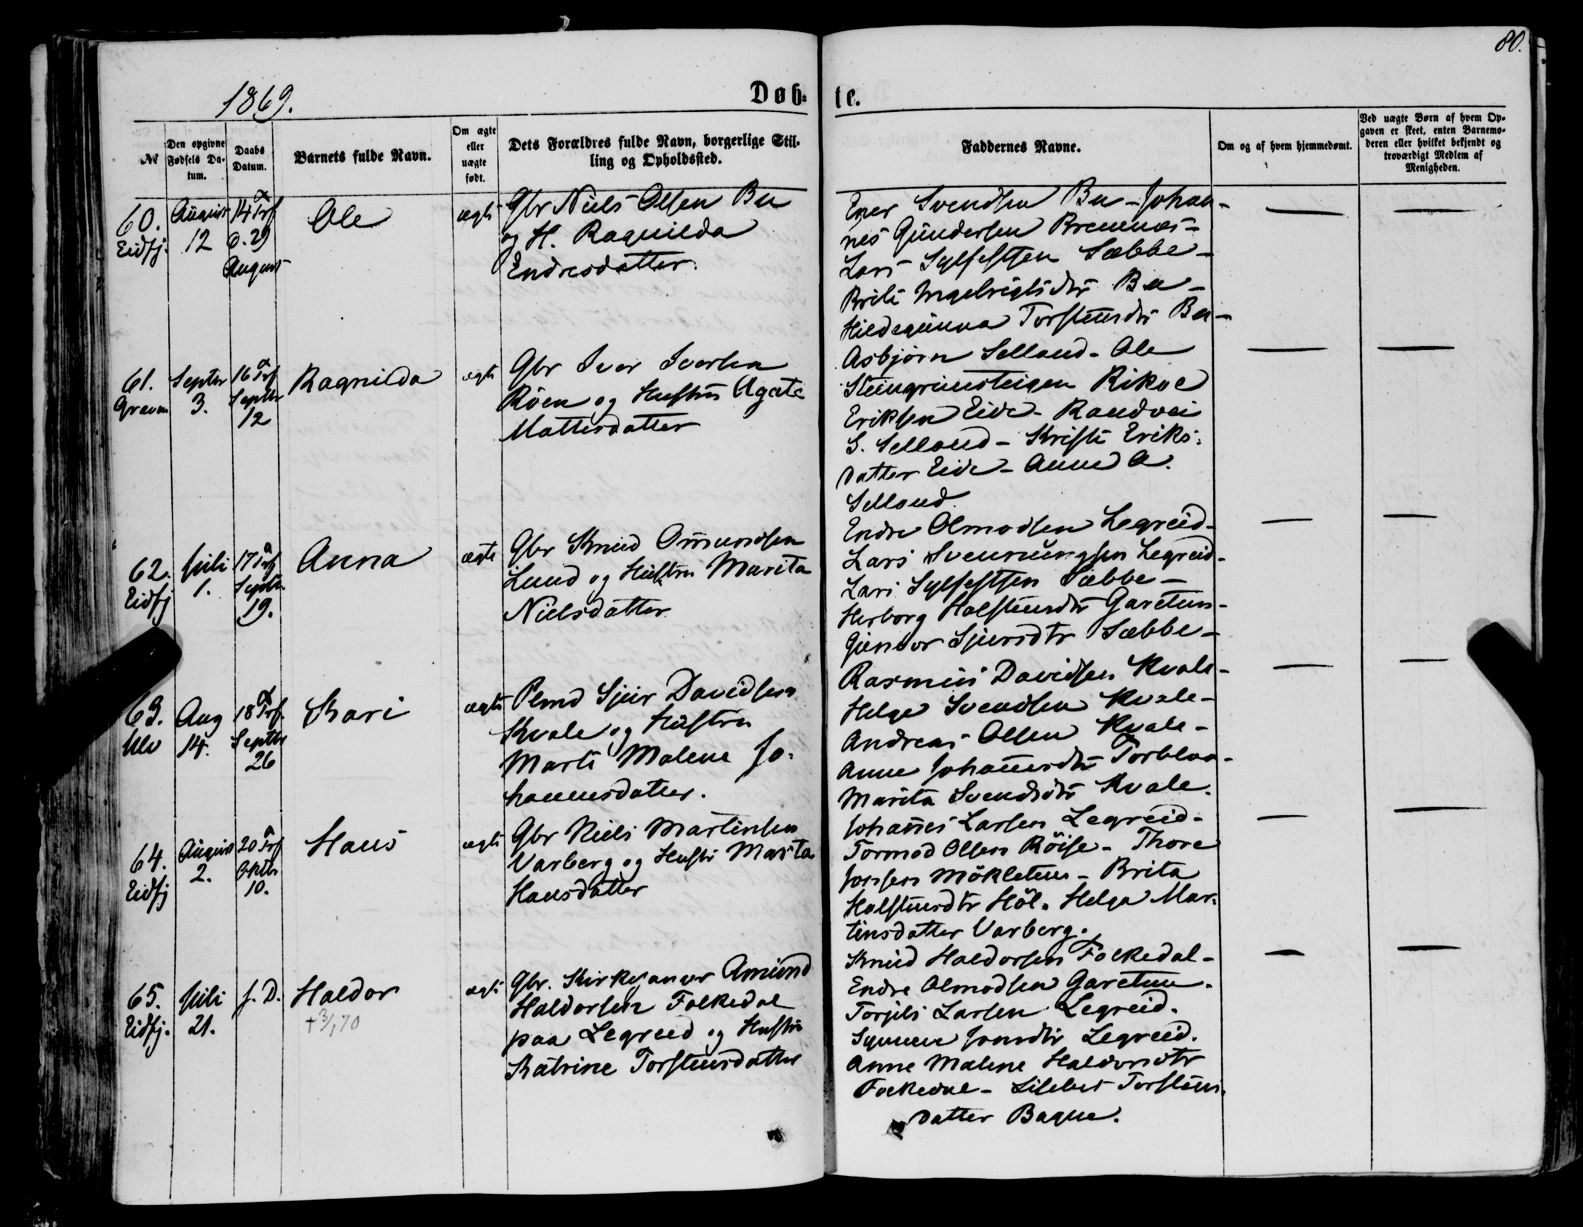 80.
1869.
Døb-
te.
№
Den opgivne Fødsels Datum.
Daabs Datum.
Barnets fulde Navn.
Om ægte eller uægte født.
Dets Forældres fulde Navn, borgerlige Stilling og Opholdssted.
Faddernes Navne.
Om og af hvem hjemmedøbt.
Ved uægte Børn af hvem Opgaven er skeet, enten Barnemoderen eller hvilket bekjendt og troværdigt Medlem af Menigheden.
60.
Eidfj.
August
12
14
29
August
Ole
ægte
Gbr Niels Olsen Bu
og H. Ragnilda
Endresdatter.
Svendsen Bu - Johan-
nes Gundersen Bremnæs -
Lars Sylfestsen Sæbbe -
Brite Ingebrigtsdtr Bu -
Hildegunna Torsteinsdtr Bu -
61.
Graven
Septbr
3.
16 Trf
Septbr
12
Ragnilda
ægte
Gbr Iver Iversen
Røen og Hustru Agate
Mattisdatter
Asbjørn Selland - Ole
Steingrimsteigen Rikve
Eriksen Eide - Randvei
S. Selland - Kristi Eriks-
datter Eide - Anna A.
Selland
62.
Eidfj
Juli
1.
17 Trf
Septbr
19.
Anna
ægte
Gbr Knud Omundsen
Lund og Hustru Marita
Nielsdatter
Endre Olmodsen Legreid -
Lars Svennungsen Legreid -
Lars Sylfestsen Sæbbe -
Herborg Halsteinsdtr Garetun -
Gunvor Sjursdtr Sæbbe -
63.
Ulv
Aug
14.
18 Trf.
Septbr
26
Kari
ægte
Plmd Sjur Davidsen
Kvale og Hustru
Marte Malene Jo-
hannesdatter.
Rasmus Davidsen Kvale -
Helge Svendsen Kvale -
Andreas Olsen Kvale -
Anna Johannesdtr Torblaa -
Marita Svendsdtr Kvale.
64.
Eidfj
August
2.
20 Trf
Oktbr
10.
Hans
ægte
Gbr Niels Martinsen
Varberg og Hustr Marta
Hansdatter
Johannes Larsen Legreid -
Tormod Olsen Røise - Thore
Jonsen Mökletun - Brita
Halsteinsdtr Høl - Helga Mar-
tinsdatter Varberg.
65.
Eidfj.
Juli
21.
f. D.
Haldor
+ 3/1 70
ægte
Gbr. Kirkesanger Amund
Haldorsen Folkedal
paa Legreid og Hustru
Katrine Torsteinsdatter
Knud Haldorsen Folkedal -
Endre Olmodsen Garetun.
Torjils Larsen Legreid.
Synneve Jonsdtr Legreid.
Anne Malene Haldorsdtr
Folkedal - Lisbet Torsteins-
datter Bagne.